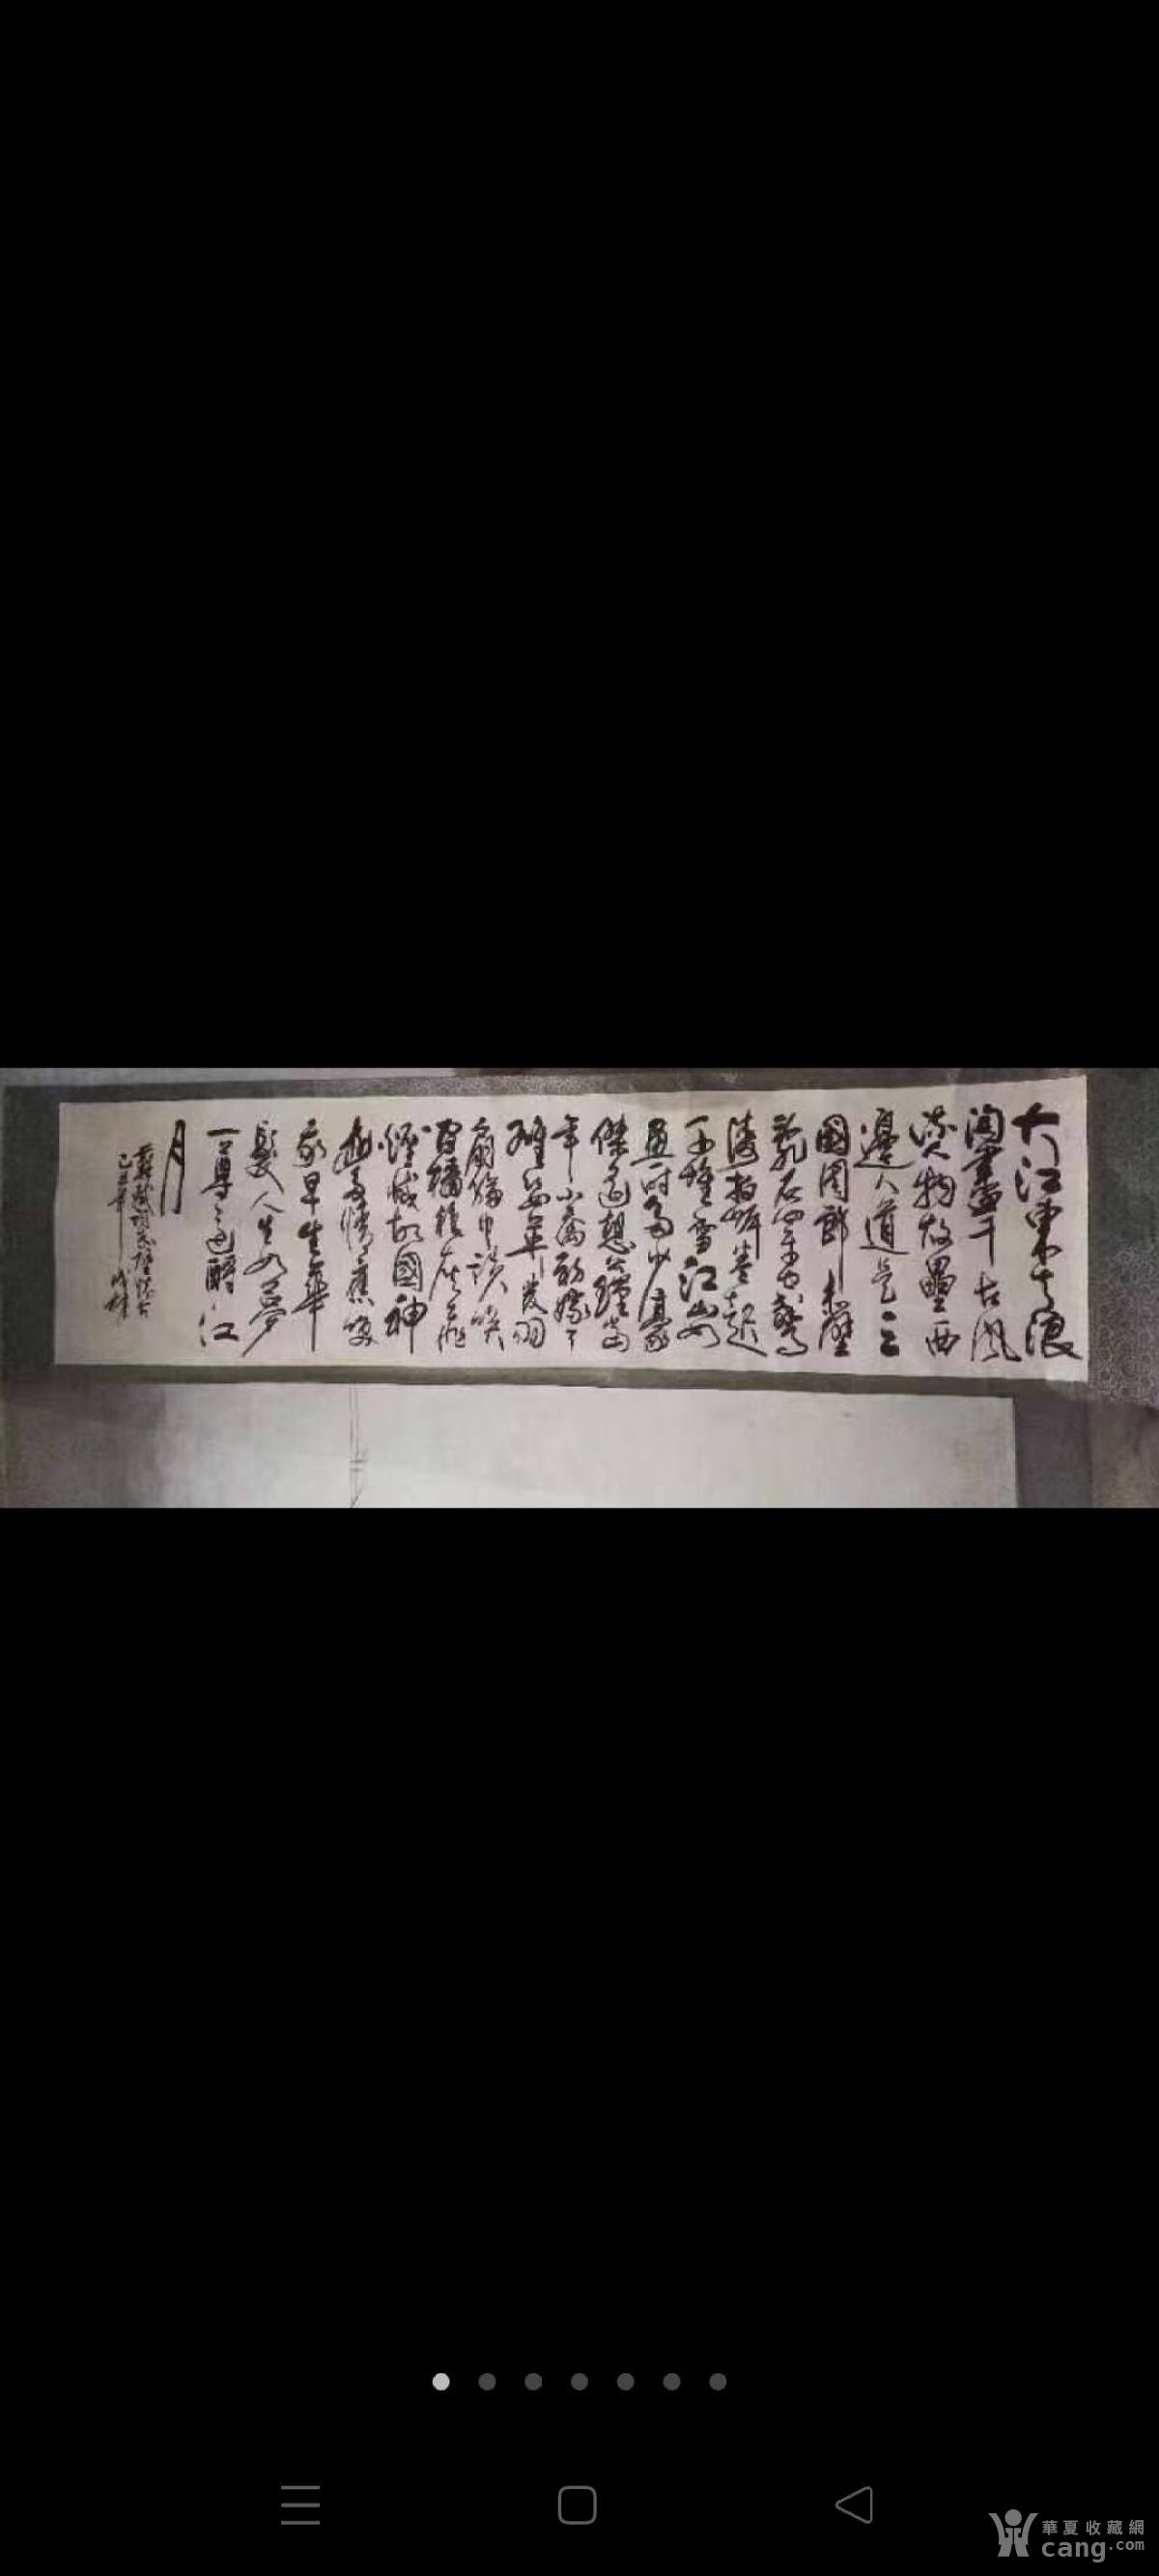 大江東去浪
淘盡千古風
流人物故壘西
邊人道是三
國周郎赤壁
亂石穿空驚
濤拍岸卷起
千堆雪江山如
畫一時多少豪
傑遙想公瑾當
年小喬初嫁了
雄姿英發羽
扇綸巾談笑
間檣櫓灰飛
煙滅故國神
遊多情應笑
我早生華
髮人生如夢
一尊還酹江
月
己丑年
華夏收藏網
cang.com